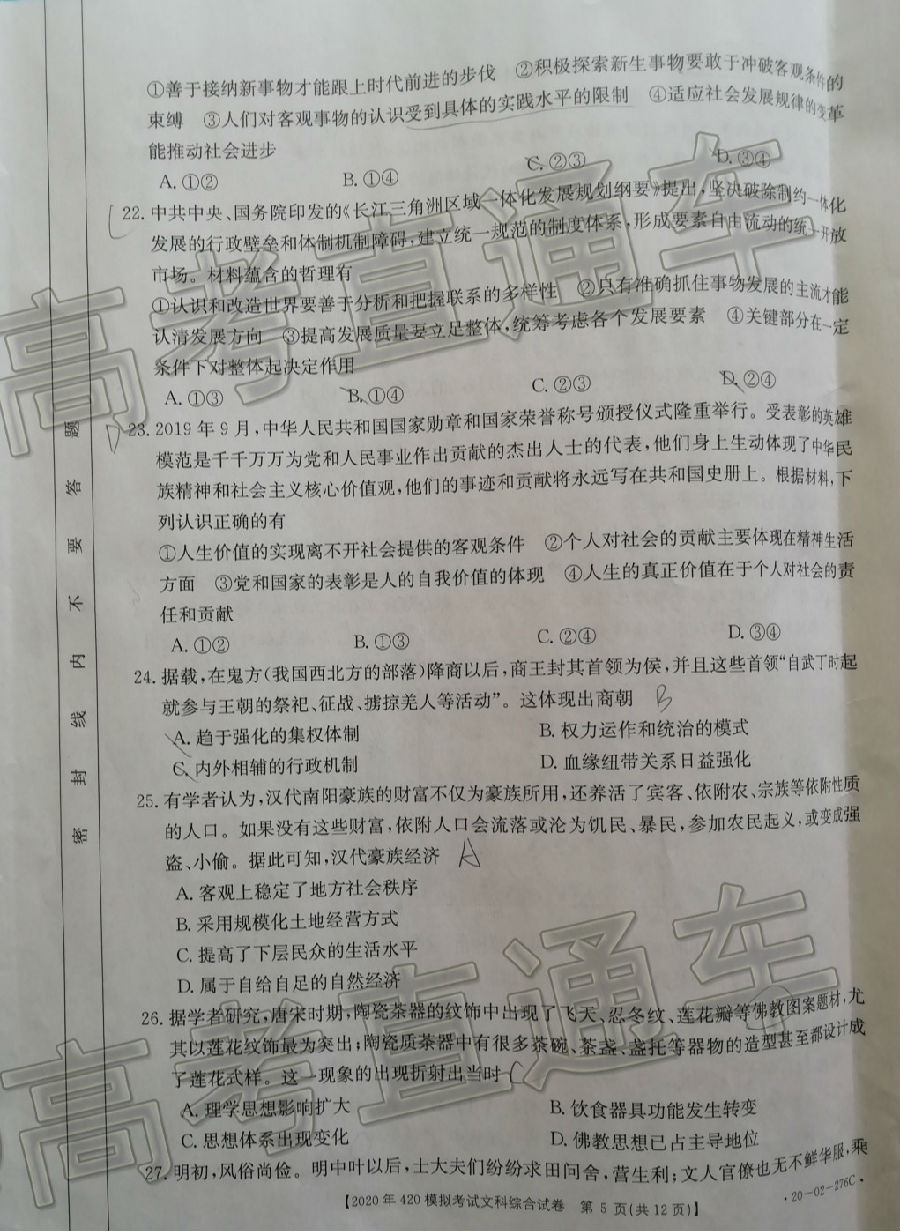 ①善于接纳新事物才能跟上时代前进的步伐 ②积极探索新生事物要敢于冲破客观条件的
束缚 ③人们对客观事物的认识受到具体的实践水平的限制 ④适应社会发展规律的变革
能推动社会进步
A. ①② B. ①④ C. ②③ D. ③④
22. 中共中央、国务院印发的《长江三角洲区域一体化发展规划纲要》提出，坚决破除制约一体化
发展的行政壁垒和体制机制障碍，建立统一规范的制度体系，形成要素自由流动的统一开放
市场。材料蕴含的哲理有
①认识和改造世界要善于分析和把握联系的多样性 ②只有准确抓住事物发展的主流才能
认清发展方向 ③提高发展质量要立足整体，统筹考虑各个发展要素 ④关键部分在一定
条件下对整体起决定作用
A. ①③ B. ①④ C. ②③ D. ②④
23. 2019 年 9 月，中华人民共和国国家勋章和国家荣誉称号颁授仪式隆重举行。受表彰的英雄
模范是千千万万为党和人民事业作出贡献的杰出人士的代表，他们身上生动体现了中华民
族精神和社会主义核心价值观，他们的事迹和贡献将永远写在共和国史册上。根据材料，下
列认识正确的有
①人生价值的实现离不开社会提供的客观条件 ②个人对社会的贡献主要体现在精神生活
方面 ③党和国家的表彰是人的自我价值的体现 ④人生的真正价值在于个人对社会的责
任和贡献
A. ①② B. ①③ C. ②④ D. ③④
24. 据载，在鬼方(我国西北方的部落)降商以后，商王封其首领为侯，并且这些首领“自武丁时起
就参与王朝的祭祀、征战、掳掠羌人等活动”。这体现出商朝 B
A. 趋于强化的集权体制 B. 权力运作和统治的模式
C. 内外相辅的行政机制 D. 血缘纽带关系日益强化
25. 有学者认为，汉代南阳豪族的财富不仅为豪族所用，还养活了宾客、依附农、宗族等依附性质
的人口。如果没有这些财富，依附人口会流落或沦为饥民、暴民，参加农民起义，或变成强
盗、小偷。据此可知，汉代豪族经济 A
A. 客观上稳定了地方社会秩序
B. 采用规模化土地经营方式
C. 提高了下层民众的生活水平
D. 属于自给自足的自然经济
26. 据学者研究，唐宋时期，陶瓷茶器的纹饰中出现了飞天、忍冬纹、莲花瓣等佛教图案题材，尤
其以莲花纹饰最为突出；陶瓷质茶器中有很多茶碗、茶盏、盏托等器物的造型甚至都设计成
了莲花式样。这一现象的出现折射出当时 C
A. 理学思想影响扩大 B. 饮食器具功能发生转变
C. 思想体系出现变化 D. 佛教思想已占主导地位
27. 明初，风俗尚俭。明中叶以后，士大夫们纷纷求田问舍，营生利；文人官僚也无不鲜华服，乘
【2020 年 420 模拟考试文科综合试卷 第 5 页(共 12 页)】
·20-02-276C·
密 封 线 内 不 要 答 题
高考直通车
高考直通车